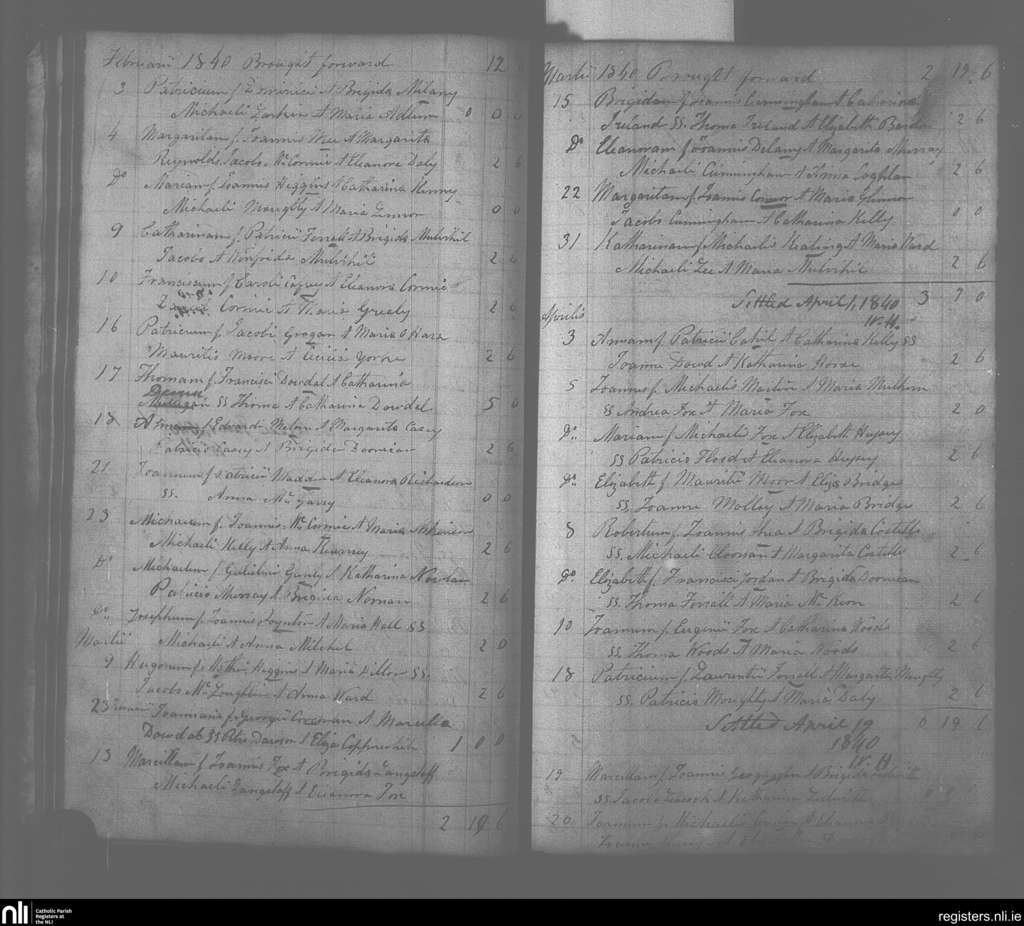 Februarii 1840 Brought forward 12
3 Patricium f. Dominici & Brigida Milany
Michaeli Larkin & Maria Adlum 0 0 0
4 Margaritam f. Joannis Mee & Margarita
Reynolds. Jacobo McCormic & Eleanore Daly 2 6
Do Mariam f. Joannis Higgins & Catharina Kenny
Michaeli Moughty & Maria 0 0
9 Catharinam f. Patricii Ferrall & Brigida Mulvihil
Jacobo & Winifrida Mulvihil 2 6
10 Franciscum f. Caroli & Eleanora Cormic
Cormic & Maria Grealy 2 0
16 Patricium f. Jacobi Grogan & Maria O Hara
Mauritio Moore & Cecicia Yorke 2 6
17 Thomam f. Francisci Dowdal & Catharina
SS Thoma & Catharina Dowdel 5 0
18 f. Edwardi & Margarita Casey
Patricio Casey & Brigida Doonican 2 6
21 Joannum f. Patricii Madden & Eleanora Richardson
SS. Anna McGarry 0 0
23 Michaelem f. Joannis McCormic & Maria
Michaeli Kelly & Anna Kearney 2 6
Do Michaelem f. Gulielmi Ganly & Katharina Nowlan
Patricio Murray & Brigida Noonan 2 6
Do Josephum f. Joannis Poynton & Maria Hall SS
Martii Michaeli & Anna Mitchel 2 0
9 Hugonem f. Higgins & Maria Dillon SS.
Jacobo McLoughlin & Anna Ward 2 6
23 Joannam f. Georgii & Marcella
Dowdal SS Petro Dawson & Eliza 1 0 0
13 Marcellam f. Joannis Fox & Brigida Langstaff
Michaeli Langstaff & Eleanora Fox
2 19 6
Martii 1840 Brought forward 2 19 6
15 Brigidam f. Joannis Cunningham & Catharina
Ireland SS. Thoma Ireland & Elizabeth Barden 2 6
Do Eleanoram f. Joannis Delamy & Margarita Murray
Michaeli Cunningham & Anna Coghlan 2 6
22 Margaritam f. Joannis Connor & Maria Glennon
Jacobo Cunningham & Catharina Kelly 0 0
31 Katharinam f. Michaelis Keating & Maria Ward
Michaeli Lee & Maria Mulvihil 2 6
Settled April 1, 1840 3 7 0
W. H.
Aprilis
3 Annam f. Patricii Cahil & Catharina Kelly SS
Joanne Dowd & Katharina 2 6
5 Joannem f. Michaelis Martin & Maria
SS Andrea Fox & Maria Fox 2 0
Do Mariam f. Michaelis Fox & Elizabeth Hussey
SS Patricio Flood & Eleanora Hussey 2 6
Do Elizabeth f. Mauritii Moor & Eliza Bridge
SS. Joanne Molloy & Maria Bridge 2 6
8 Robertum f. Joannis Shea & Brigida Costello
SS. Michaeli Noonan & Margarita Costello 2 6
Do Elizabeth f. Francisci Jordan & Brigida Doonican
SS. Thoma Ferrall & Maria McKeon 2 6
10 Joannum f. Eugenii Fox & Catharina Woods
SS. Thoma Woods & Maria Woods 2 6
18 Patricium f. Laurentii Ferrall & Margarita Moughty
SS. Patricio Moughty & Maria Daly 2 6
Settled April 19 0 19 6
1840
W. H
19 Marcellam f. Joannis Geoghegan & Brigida
SS. Jacobo & Katharina
20 Joannum f. Michaelis
nli
Catholic Parish
Registers at
the NLI
registers.nli.ie